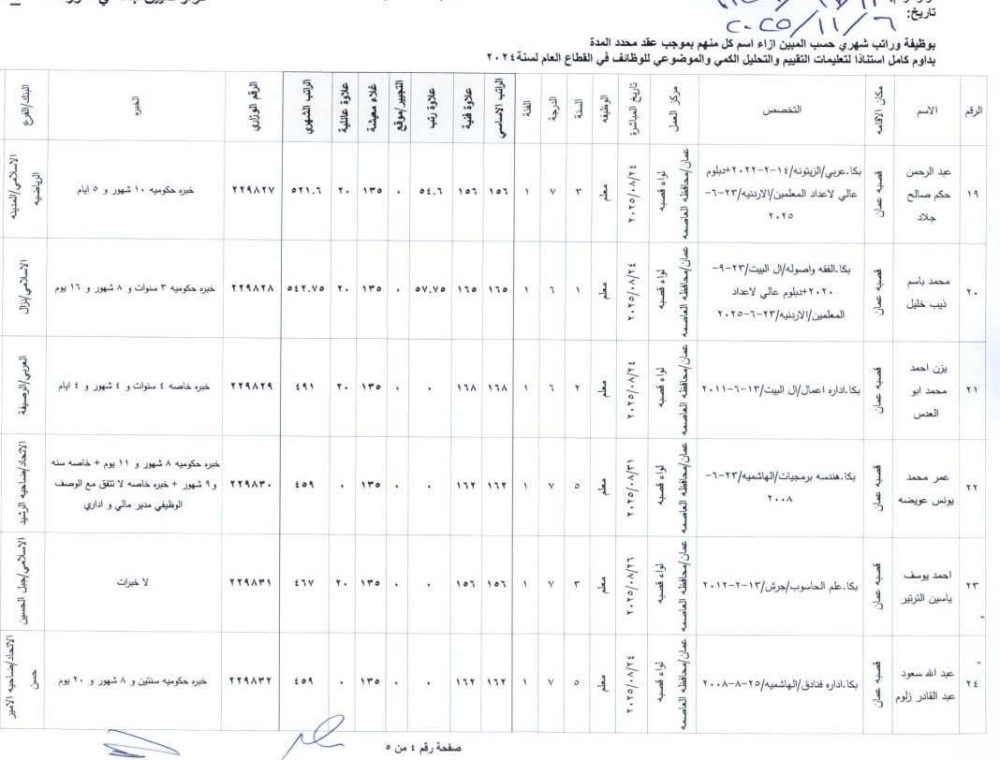 تاريخ: ٢٠٢٥/١١/٦
بوظيفة وراتب شهري حسب المبين ازاء اسم كل منهم بموجب عقد محدد المدة
بداوم كامل استنادا لتعليمات التقييم والتحليل الكمي والموضوعي للوظائف في القطاع العام لسنة ٢٠٢٤
الرقم الاسم مكان الاقامه التخصص مركز العمل تاريخ المباشرة الوظيفه السنة الدرجة الفئة الراتب الاساسي علاوة فنية علاوة رتب التجيير/موقع غلاء معيشة علاوة عائلية الراتب الشهري الرقم الوزاري الخبره البنك/الفرع
١٩ عبد الرحمن حكم صالح جلاد قصبة عمان بكا.عربي/الزيتونه/١٤-٢-٢٠٢٢+دبلوم عالي لاعداد المعلمين/الاردنيه/٢٣-٦-٢٠٢٥ عمان/محافظه العاصمه لواء قصبه ٢٠٢٥/٠٨/٢٤ معلم ٣ ٧ ١ ١٥٦ ١٥٦ ٥٤.٦ ٠ ١٣٥ ٢٠ ٥٢١.٦ ٢٢٩٨٢٧ خبره حكوميه ١٠ شهور و ٥ ايام الاسلامي/المدينه الرياضيه
٢٠ محمد باسم ذيب خليل قصبة عمان بكا.الفقه واصوله/ال البيت/٢٣-٩-٢٠٢٠+دبلوم عالي لاعداد المعلمين/الاردنيه/٢٣-٦-٢٠٢٥ عمان/محافظه العاصمه لواء قصبه ٢٠٢٥/٠٨/٢٤ معلم ١ ٦ ١ ١٦٥ ١٦٥ ٥٧.٧٥ ٠ ١٣٥ ٢٠ ٥٤٢.٧٥ ٢٢٩٨٢٨ خبره حكوميه ٣ سنوات و ٨ شهور و ١٦ يوم الاسلامي/نزال
٢١ يزن احمد محمد ابو العدس قصبة عمان بكا.اداره اعمال/ال البيت/١٣-٦-٢٠١١ عمان/محافظه العاصمه لواء قصبه ٢٠٢٥/٠٨/٢٤ معلم ٢ ٦ ١ ١٦٨ ١٦٨ ٠ ٠ ١٣٥ ٢٠ ٤٩١ ٢٢٩٨٢٩ خبره خاصه ٤ سنوات و ٤ شهور و ٤ ايام العربي/الرصيفة
٢٢ عمر محمد يونس عويضه قصبة عمان بكا.هندسه برمجيات/الهاشميه/٢٣-٦-٢٠٠٨ عمان/محافظه العاصمه لواء قصبه ٢٠٢٥/٠٨/٣١ معلم ٥ ٧ ١ ١٦٢ ١٦٢ ٠ ٠ ١٣٥ ٠ ٤٥٩ ٢٢٩٨٣٠ خبره حكوميه ٨ شهور و ١١ يوم + خاصه سنه و٩ شهور + خبره خاصه لا تتفق مع الوصف الوظيفي مدير مالي و اداري الاتحاد/ضاحيه الرشيد
٢٣ احمد يوسف ياسين الترتير قصبة عمان بكا.علم الحاسوب/جرش/١٣-٢-٢٠١٢ عمان/محافظه العاصمه لواء قصبه ٢٠٢٥/٠٨/٢٦ معلم ٣ ٧ ١ ١٥٦ ١٥٦ ٠ ٠ ١٣٥ ٢٠ ٤٦٧ ٢٢٩٨٣١ لا خبرات الاسلامي/جبل الحسين
٢٤ عبد الله سعود عبد القادر زلوم قصبة عمان بكا.اداره فنادق/الهاشميه/٢٥-٨-٢٠٠٨ عمان/محافظه العاصمه لواء قصبه ٢٠٢٥/٠٨/٢٤ معلم ٥ ٧ ١ ١٦٢ ١٦٢ ٠ ٠ ١٣٥ ٠ ٤٥٩ ٢٢٩٨٣٢ خبره حكوميه سنتين و ٨ شهور و ٢٠ يوم الاتحاد/ضاحيه الامير حسن
صفحة رقم ٤ من ٥